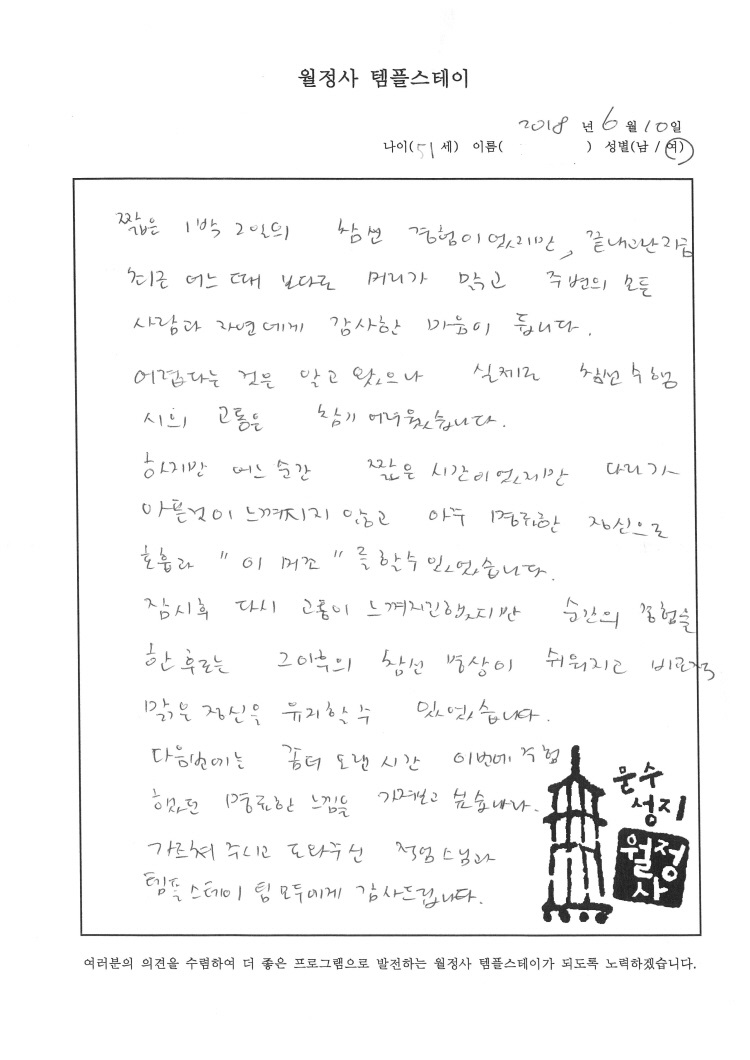 월정사 템플스테이
2018 년 6 월 10 일
나이(51 세) 이름( ) 성별(남 / 여)
짧은 1박 2일의 참선 경험이었지만, 끝내고난지금
최근 어느 때 보다도 머리가 맑고 주변의 모든
사람과 자연에게 감사한 마음이 듭니다.
어렵다는 것은 알고 왔으나 실제로 참선 수행
시의 고통은 참기 어려웠습니다.
하지만 어느 순간 짧은 시간이었지만 다리가
아픈것이 느껴지지 않고 아주 명료한 정신으로
호흡과 "이 뭐꼬"를 할 수 있었습니다.
잠시후 다시 고통이 느껴지긴했지만 순간의 경험을
한 후로는 그이후의 참선 명상이 쉬워지고 비교적
맑은 정신을 유지할 수 있었습니다.
다음번에는 좀더 오랜 시간 이번에 경험
했던 명료한 느낌을 가져보고 싶습니다.
가르쳐 주시고 도와주신 적엄스님과
템플스테이 팀 모두에게 감사드립니다.
문수
성지
월정
사
여러분의 의견을 수렴하여 더 좋은 프로그램으로 발전하는 월정사 템플스테이가 되도록 노력하겠습니다.